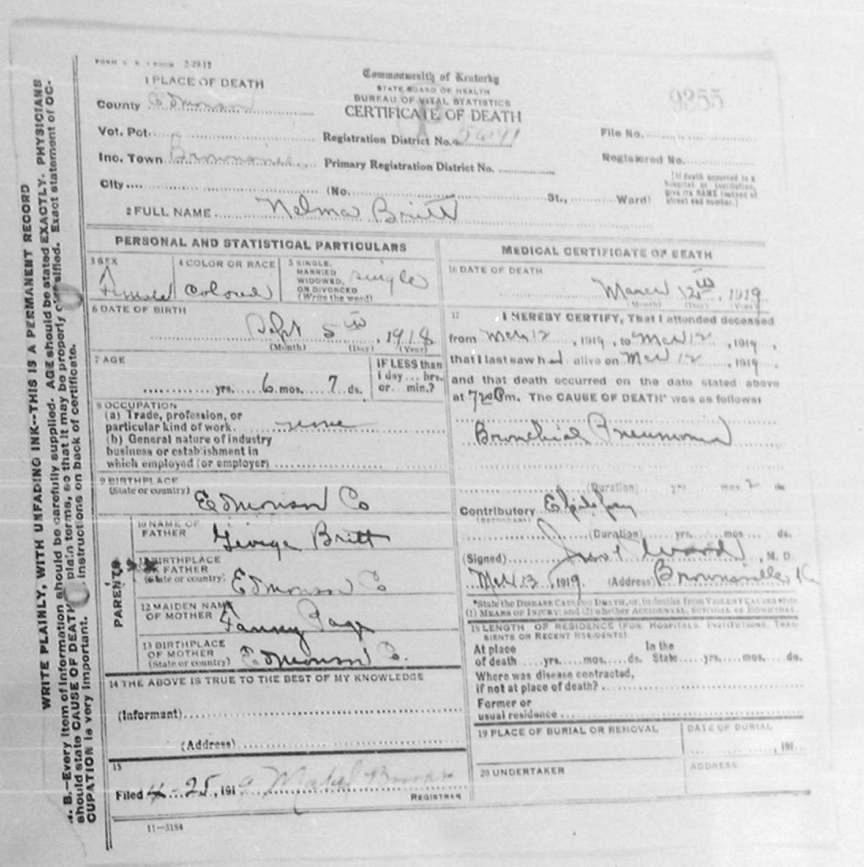 WRITE PLAINLY, WITH UNFADING INK--THIS IS A PERMANENT RECORD
N. B.—Every item of information should be carefully supplied. AGE should be stated EXACTLY. PHYSICIANS
should state CAUSE OF DEATH in plain terms, so that it may be properly classified. Exact statement of OC-
CUPATION is very important. instructions on back of certificate.
1 PLACE OF DEATH
County Edmonson
Vot. Pct.
Inc. Town Brownsville
City
Commonwealth of Kentucky
STATE BOARD OF HEALTH
BUREAU OF VITAL STATISTICS
CERTIFICATE OF DEATH
Registration District No. 5641
Primary Registration District No.
(No. St., Ward)
9255
File No.
Registered No.
[If death occurred in a
hospital or institution,
give its NAME instead of
street and number.]
2 FULL NAME Nelma Britt
PERSONAL AND STATISTICAL PARTICULARS
3 SEX
Female
4 COLOR OR RACE
Colored
5 SINGLE,
MARRIED
WIDOWED,
OR DIVORCED
(Write the word)
single
6 DATE OF BIRTH
Sept 5th, 1918
(Month) (Day) (Year)
7 AGE
yrs. 6 mos. 7 ds.
IF LESS than
1 day... hrs.
or... min.?
8 OCCUPATION
(a) Trade, profession, or
particular kind of work none
(b) General nature of industry
business or establishment in
which employed (or employer)
9 BIRTHPLACE
(State or country) Edmonson Co
PARENTS
10 NAME OF
FATHER George Britt
11 BIRTHPLACE
OF FATHER
(State or country) Edmonson Co
12 MAIDEN NAME
OF MOTHER Fanny Page
13 BIRTHPLACE
OF MOTHER
(State or country) Edmonson Co.
14 THE ABOVE IS TRUE TO THE BEST OF MY KNOWLEDGE
(Informant)
(Address)
15
Filed 4-25, 191
REGISTRAR
11—3184
MEDICAL CERTIFICATE OF DEATH
16 DATE OF DEATH
March 12th, 1919
(Month) (Day) (Year)
17 I HEREBY CERTIFY, That I attended deceased
from Mch 12, 1919, to Mch 12, 1919,
that I last saw h alive on Mch 12, 1919,
and that death occurred on the date stated above
at m. The CAUSE OF DEATH* was as follows:
Bronchial Pneumonia
(Duration) yrs mos 2 ds
Contributory Epilepsy
(Secondary)
(Duration) yrs. mos ds.
(Signed) Ward, M. D.
Mch 13, 1919 (Address) Brownsville Ky
*State the DISEASE CAUSING DEATH, or, in deaths from VIOLENT CAUSES state
(1) MEANS OF INJURY; and (2) whether ACCIDENTAL, SUICIDAL or HOMICIDAL.
18 LENGTH OF RESIDENCE (FOR HOSPITALS, INSTITUTIONS, TRAN-
SIENTS OR RECENT RESIDENTS)
At place In the
of death yrs. mos. ds. State yrs. mos. ds.
Where was disease contracted,
if not at place of death?
Former or
usual residence
19 PLACE OF BURIAL OR REMOVAL
DATE OF BURIAL
, 191
20 UNDERTAKER
ADDRESS